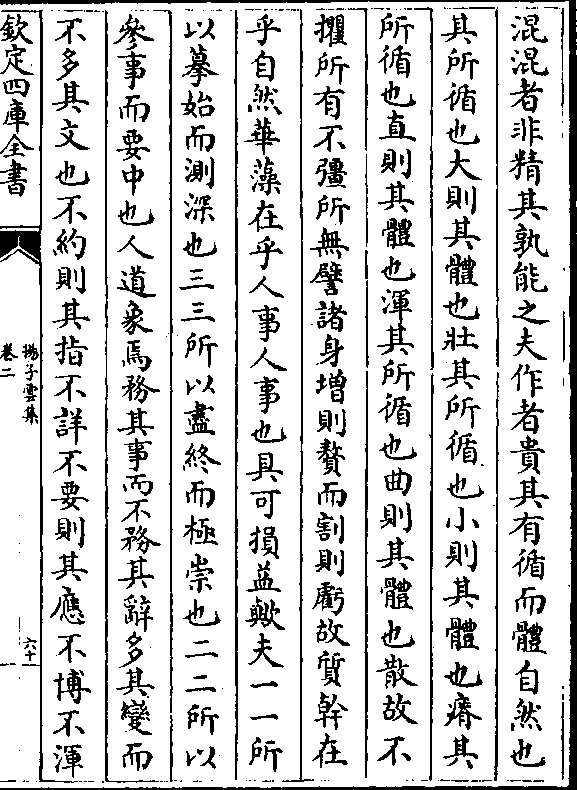 混混者非精其孰能之夫作者貴其有循而體自然也
其所循也大則其體也壯其所循也小則其體也瘠其
所循也直則其體也渾其所循也曲則其體也散故不
攫所有不彊所無譬諸身增則贅而割則虧故質幹在
乎自然華藻在乎人事人事也具可損益歟夫一一所
以摹始而測深也三三所以盡終而極崇也二二所以
參事而要中也人道象焉務其事而不務其辭多其變而
不多其文也不約則其指不詳不要則其應不博不渾
欽定四庫全書
揚子雲集
卷二
六十